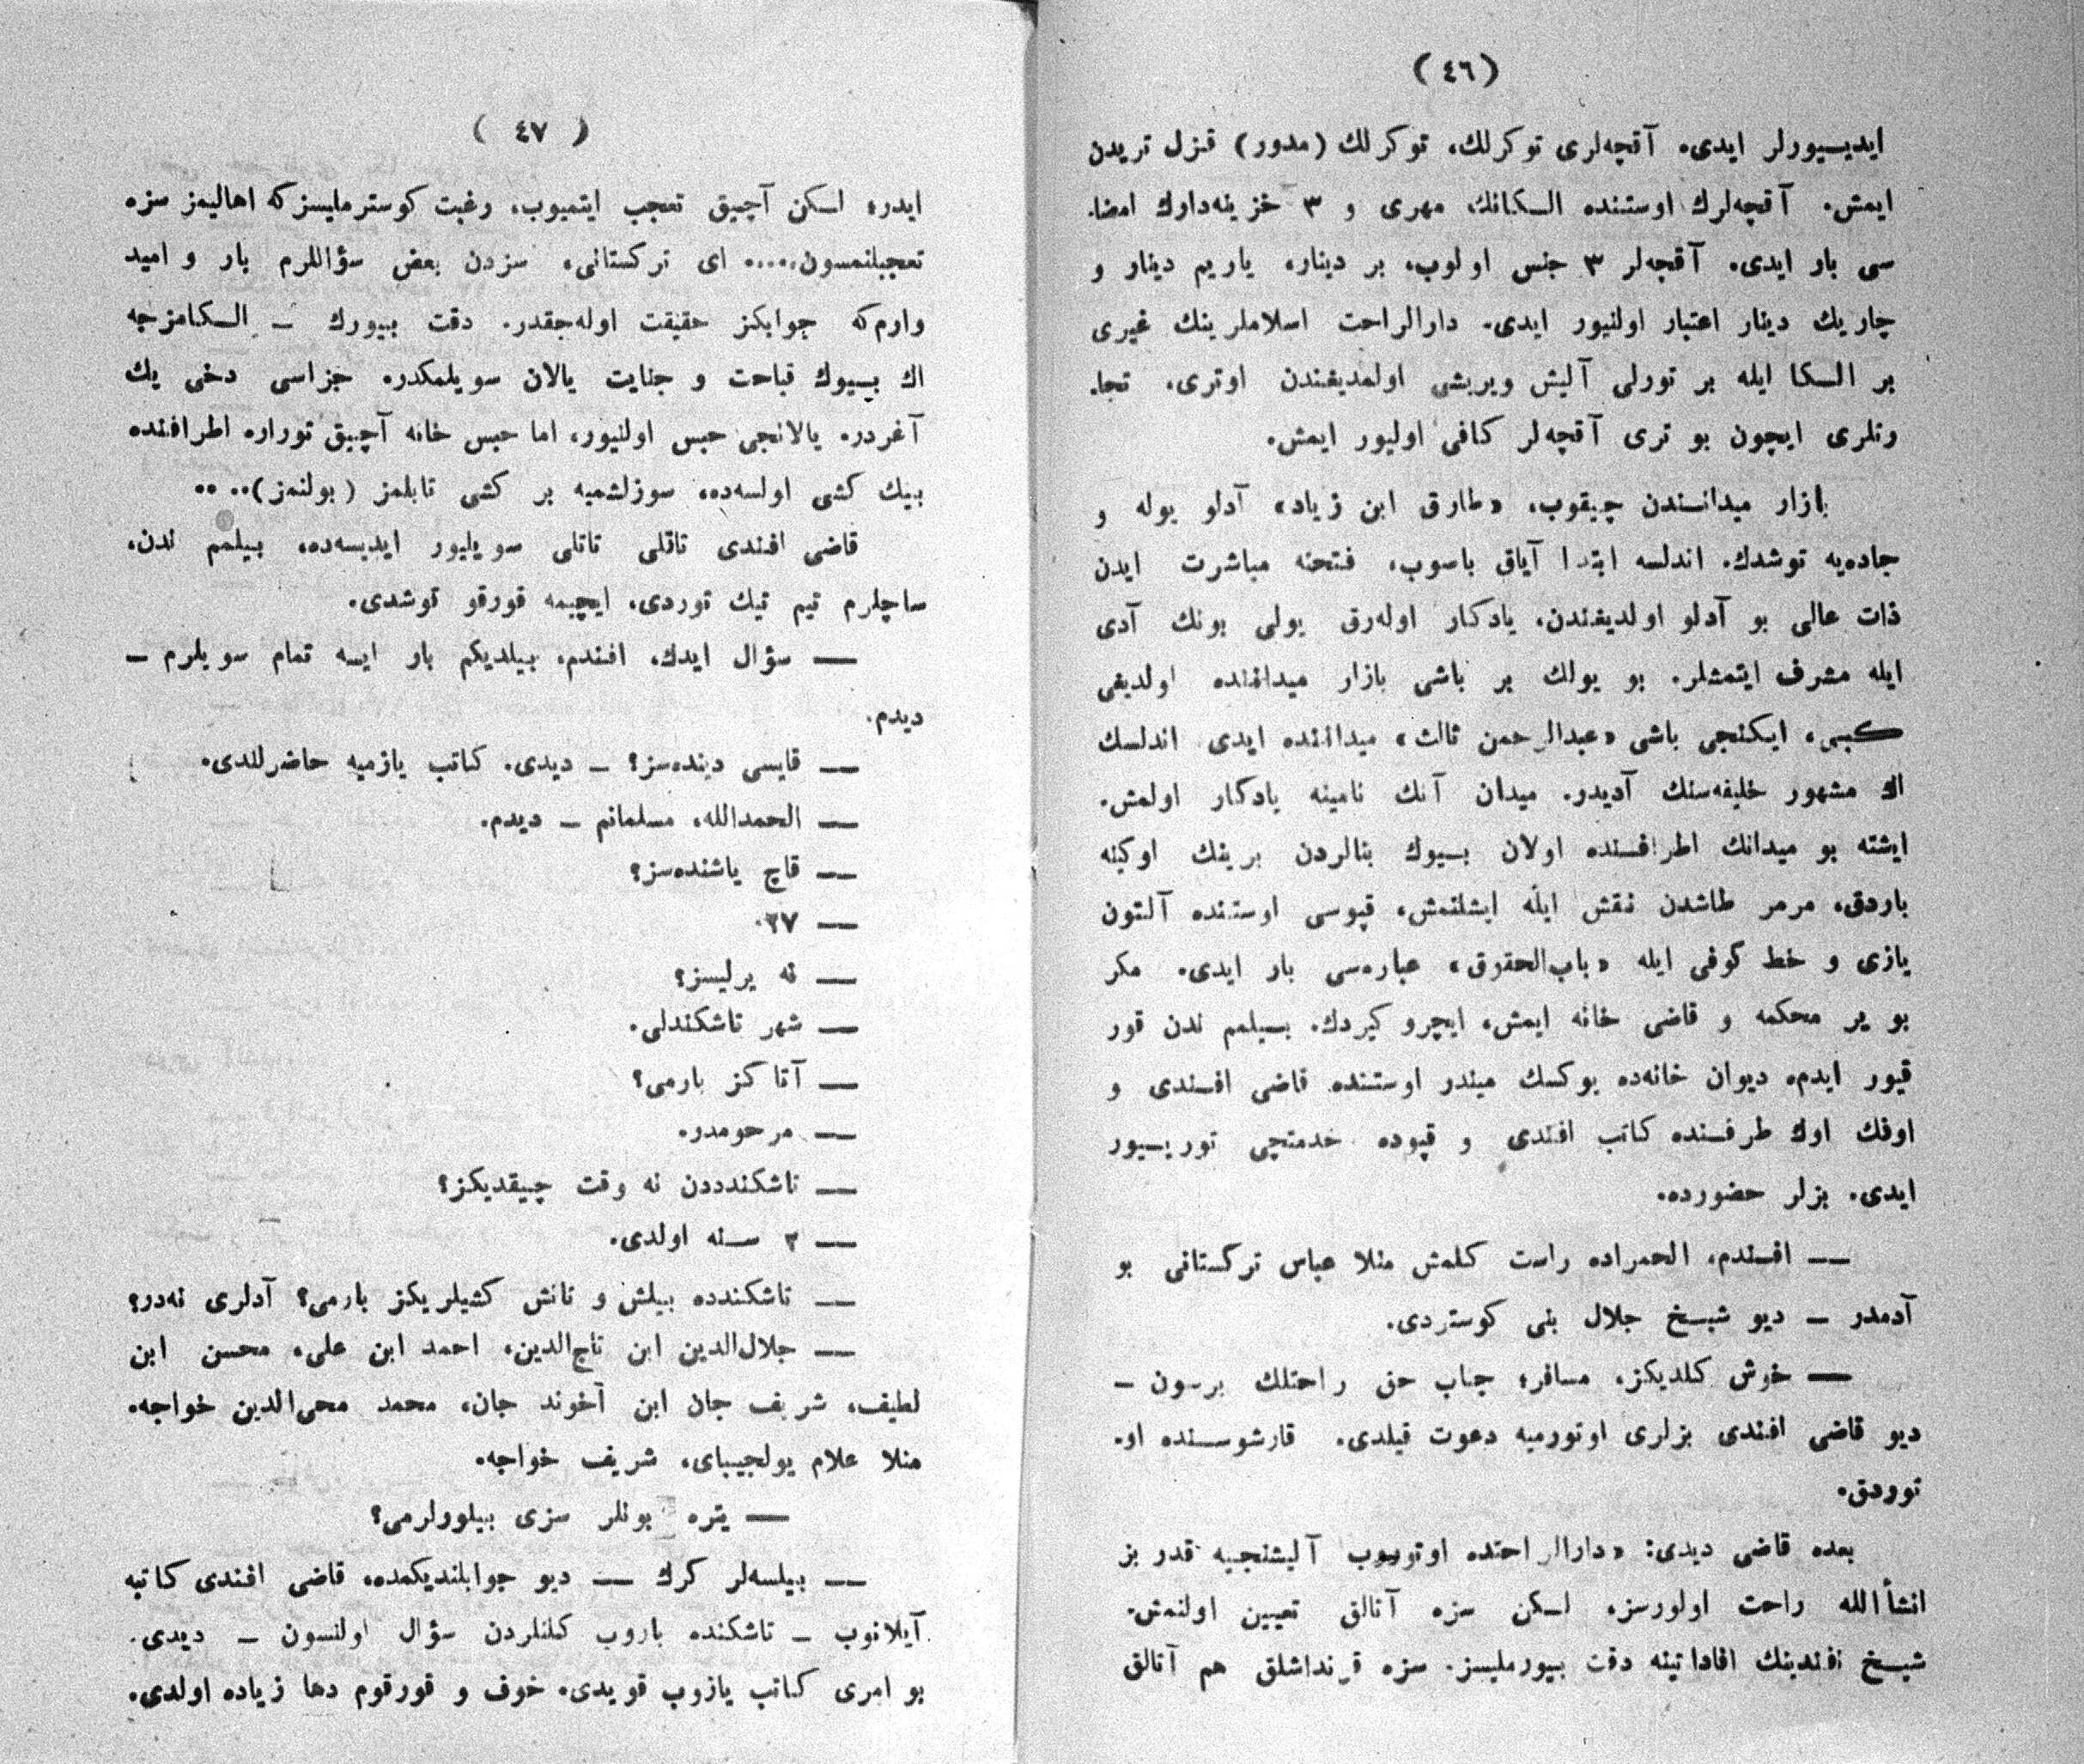 (٤٦)
ايديسيورلر ايدى. آقچه‌لرى توكرلك، توكرلك (مدور) قزل تريدن
ايمش. آقچه‌لرك اوستنده الكانك مهرى و ٣ خزينه‌دارك امضا.
سى بار ايدى. آقچه‌لر ٣ جنس اولوب، بر دينار، ياريم دينار و
چاريك دينار اعتبار اولنيور ايدى. دارالراحت اسلاملرينك غيرى
بر الكا ايله بر تورلى آليش ويريشى اولمديغندن اوترى، تجا.
رتلرى ايچون بو ترى آقچه‌لر كافى اوليور ايمش.
بازار ميداننندن چيقوب، «طارق ابن زياد» آدلو يوله و
جاده‌يه توشدك. اندلسه ابتدا آياق باسوب، فتحنه مباشرت ايدن
ذات عالى بو آدلو اولديغندن، يادكار اوله‌رق يولى بونك آدى
ايله مشرف ايتمشلر. بو يولك بر باشى بازار ميداننده اولديغى
كبى، ايكنجى باشى «عبدالرحمن ثالث» ميداننده ايدى اندلسك
اك مشهور خليفه‌سنك آديدر. ميدان آنك نامينه يادكار اولمش.
ايشته بو ميدانك اطرافنده اولان بيوك بنالردن برينك اوكينه
باردق، مرمر طاشدن نقش ايله ايشلنمش، قپوسى اوستنده آلتون
يازى و خط كوفى ايله «باب‌الحقوق» عباره‌سى بار ايدى. مكر
بو ير محكمه و قاضى خانه ايمش، ايچرو كيردك. بيلمم ندن قور
قيور ايدم. ديوان خانه‌ده يوكسك ميندر اوستنده قاضى افندى و
اوڭك اوڭ طرفنده كاتب افندى و قپوده خدمتچى توريبور
ايدى. بزلر حضورده.
— افندم، الحمراده راست كلمش منلا عباس تركستانى بو
آدمدر — ديو شيخ جلال بنى كوستردى.
— خوش كلديكز، مسافر؛ جناب حق راحتلك برسون —
ديو قاضى افندى بزلرى اوتورميه دعوت قيلدى. قارشوسنده او.
توردق.
بعده قاضى ديدى: «دارالراحتده اوتوروب آليشنجيه قدر بز
انشأالله راحت اولورسز، لكن سزه آتالق تعيين اولنمش.
شيخ افندينك افاداتينه دقت بيورمليسز. سزه قرنداشلق هم آتالق
( ٤٧ )
ايدر؛ لكن آچيق تعجب ايتميوب، رغبت كوسترمليسزكه اهاليمز سزه
تعجبلنمسون..... اى تركستانى، سزدن بعض سؤاللرم بار و اميد
وارم كه جوابكز حقيقت اوله‌جقدر. دقت بيورك — الكامزجه
اك بيوك قباحت و جنايت يالان سويلمكدر. جزاسى دخى يك
آغردر. يالانجى حبس اولنيور، اما حبس خانه آچيق تورار. اطرافنده
بيك كشى اولسه‌ده، سوزلشميه بر كشى تابلمز (بولنمز)....
قاضى افندى تاتلى تاتلى سويليور ايديسه‌ده، بيلمم ندن،
ساچلرم تيم تيك توردى، ايچيمه قورقو توشدى.
— سؤال ايدك، افندم، بيلديكم بار ايسه تمام سويلرم —
ديدم.
— قايسى دينده‌سز؟ — ديدى. كاتب يازميه حاضرلندى.
— الحمدالله، مسلمانم — ديدم.
— قاچ ياشنده‌سز؟
— ٢٧.
— نه يرليسز؟
— شهر تاشكندلى.
— آتاكز بارمى؟
— مرحومدر.
— تاشكنددن نه وقت چيقديكز؟
— ٢ سنه اولدى.
— تاشكندده بيلش و تانش كشيلريكز بارمى؟ آدلرى نه‌در؟
— جلال‌الدين ابن تاج‌الدين، احمد ابن على، محسن ابن
لطيف، شريف جان ابن آخوند جان، محمد محى‌الدين خواجه،
منلا علام يولجيباى، شريف خواجه.
— يتره بونلر سزى بيلورلرمى؟
— بيلسه‌لر كرك — ديو جوابلنديكمده، قاضى افندى كاتبه
آيلانوب — تاشكنده باروب كلنلردن سؤال اولنسون — ديدى.
بو امرى كاتب يازوب قويدى. خوف و قورقوم دها زياده اولدى.